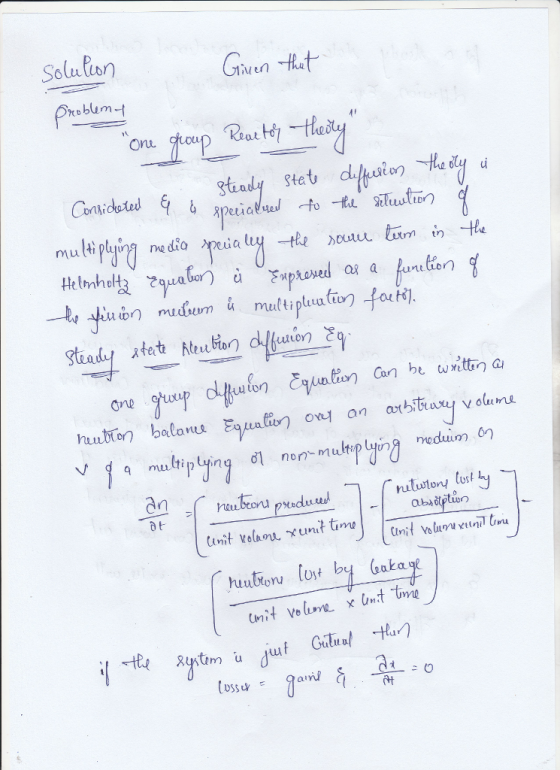 Solution Given that
Problem-1
"One group Reactor theory"
Steady state diffusion theory is
Considered & is specialized to the situation of
multiplying media specially the source term in the
Helmholtz Equation is Expressed as a function of
the fission medium is multiplication factor.
Steady state Neutron diffusion Eq.
One group diffusion Equation can be written as
neutron balance Equation over an arbitrary volume
V of a multiplying or non-multiplying medium as
∂n/∂t = [neutrons produced / unit volume x unit time] - [neutrons lost by absorption / unit volume x unit time] -
[neutrons lost by leakage / unit volume x unit time]
if the system is just Critical then
losses = gains & ∂n/∂t = 0